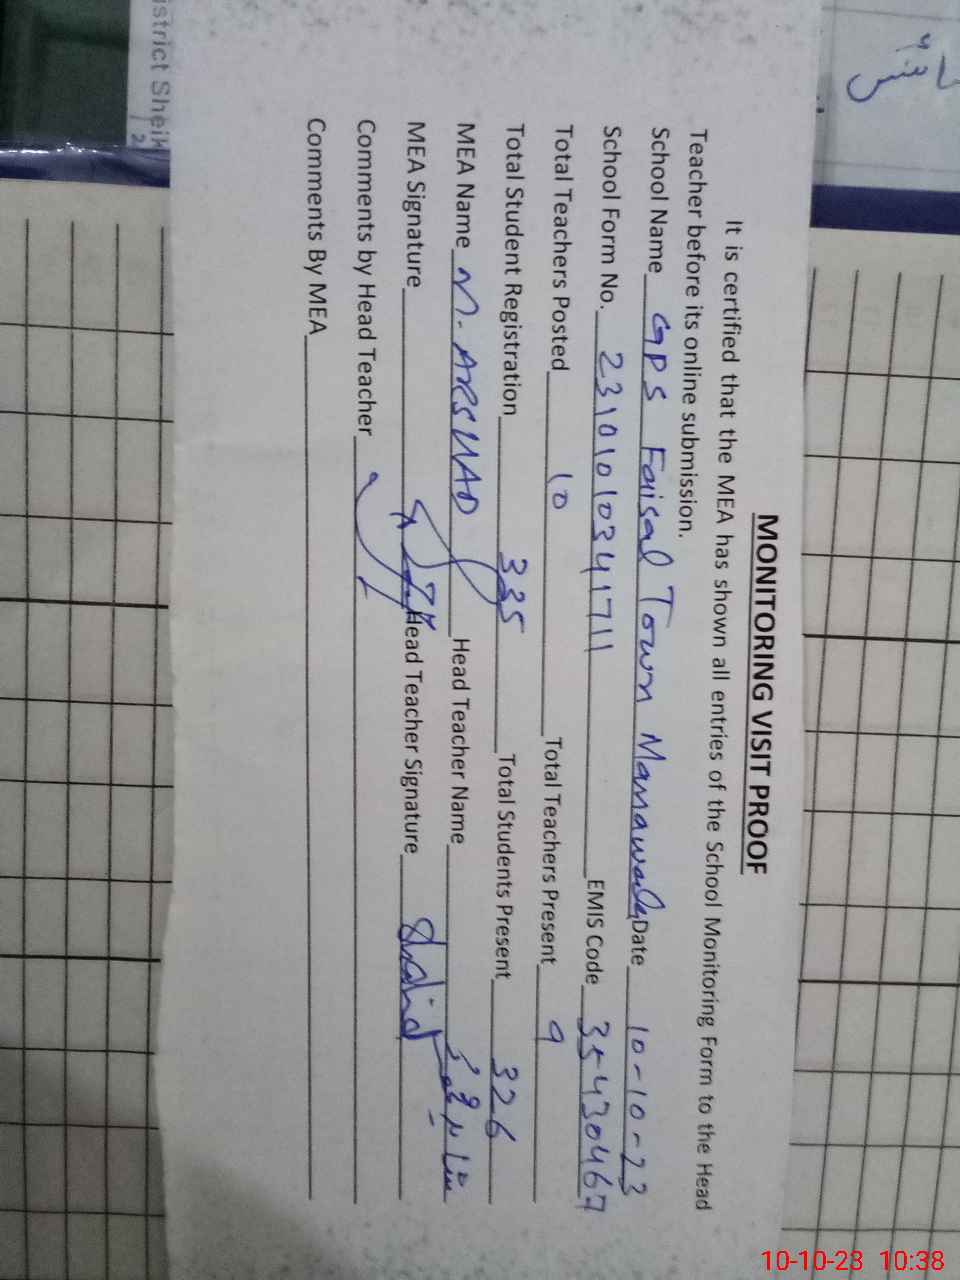 MONITORING VISIT PROOF
It is certified that the MEA has shown all entries of the School Monitoring Form to the Head
Teacher before its online submission.
School Name GPS Faisal Town Manawala Date 10-10-23
School Form No. 2310101034 1711 EMIS Code 35430467
Total Teachers Posted 10 Total Teachers Present 9
Total Student Registration 335 Total Students Present 326
MEA Name M. ARSHAD Head Teacher Name
MEA Signature Head Teacher Signature
Comments by Head Teacher
Comments By MEA
istrict Sheik
10-10-23 10:38